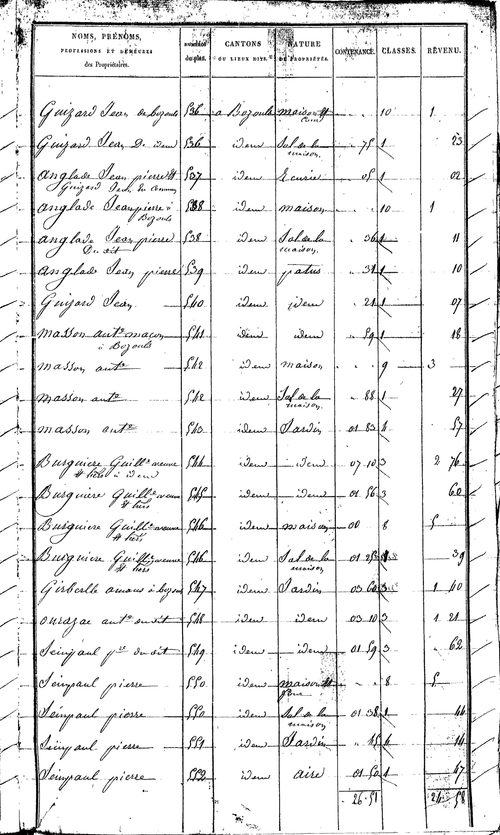 NOMS, PRÉNOMS, PROFESSIONS ET DEMEURES des Propriétaires. NUMÉROS du plan. CANTONS OU LIEUX DITS. NATURE DE PROPRIÉTÉS. CONTENANCE. CLASSES. REVENU.
Guizard Jean de bozouls 536 a Bozouls maison et Cour 10 1
Guizard Jean De idem 536 idem Sol de la maison . 75 1 23
Anglade Jean pierre et 537 idem Ecurie . 05 1 02
Guizard Jean
Anglade Jean pierre à Bozouls 538 idem maison . . 10 1
Anglade Jean pierre Du dit 538 idem Sol de la maison . 36 1 11
Anglade Jean pierre 539 idem patus . 31 1 10
Guizard Jean 540 idem idem . 21 1 07
Masson ant.e maçon à Bozouls 541 idem idem . 59 1 18
masson ant.e 542 idem maison . . 9 3
masson ant.e 542 idem Sol de la maison . 88 1 27
masson ant.e 543 idem Jardin 01 83 4 57
Burguiere Guill.e veuve et hers à idem 544 idem idem 07 10 3 2 76
Burguiere Guill.e veuve et hers 545 idem idem 01 56 3 62
Burguiere Guill.e veuve et hers 546 idem maison 00 8 5
Burguiere Guill.e veuve et hers 546 idem Sol de la maison 01 25 39
547 idem Jardin 03 60 3 1 40
ant.e du dit 548 idem idem 03 10 3 1 21
Seinpaul p.re du dit 549 idem idem 01 59 3 . 62
Seinpaul pierre 550 idem maison et 8 5
Seinpaul pierre 550 idem Sol de la maison 01 38 1 44
Seinpaul pierre 551 idem Jardin . 45 4 14
Seinpaul pierre 552 idem aire 01 50 1 47
26 51 24 58